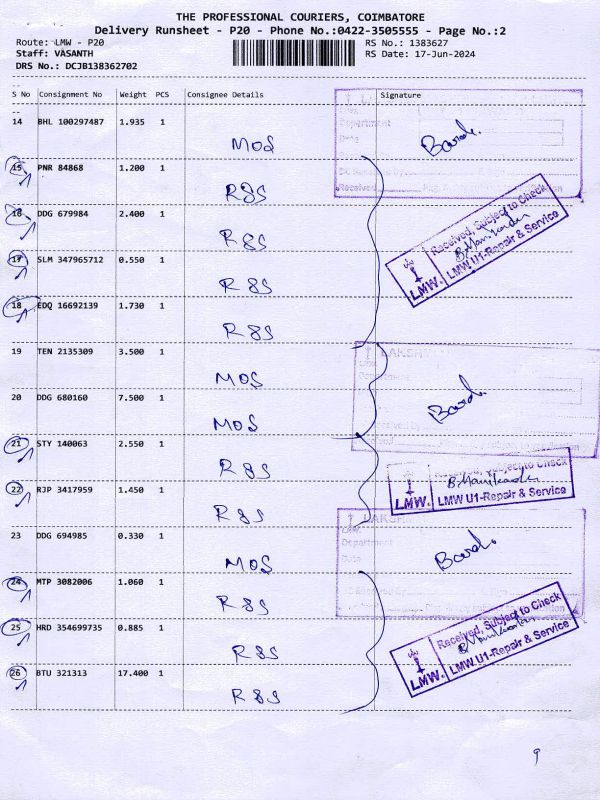 THE PROFESSIONAL COURIERS, COIMBATORE
Delivery Runsheet - P20 - Phone No.:0422-3505555 - Page No.:2
Route: LMW - P20 RS No.: 1383627
Staff: VASANTH RS Date: 17-Jun-2024
DRS No.: DCJB138362702
S No Consignment No Weight PCS Consignee Details Signature
14 BHL 100297487 1.935 1
MOS
15 PNR 84868 1.200 1
R&S
16 DDG 679984 2.400 1
R&S
17 SLM 347965712 0.550 1
R&S
18 EDQ 16692139 1.730 1
R&S
Received, Subject to Check
B.Manikandan
LMW. LMW U1-Repair & Service
19 TEN 2135309 3.500 1
MOS
LAKSHM
20 DDG 680160 7.500 1
MOS
21 STY 140063 2.550 1
R&S
22 RJP 3417959 1.450 1
R&S
Received, Subject to Check
B.Manikandan
LMW. LMW U1-Repair & Service
23 DDG 694985 0.330 1
MOS
Department
Date
24 MTP 3082006 1.060 1
R&S
25 HRD 354699735 0.885 1
R&S
26 BTU 321313 17.400 1
R&S
Received, Subject to Check
B.Manikandan
LMW. LMW U1-Repair & Service
9